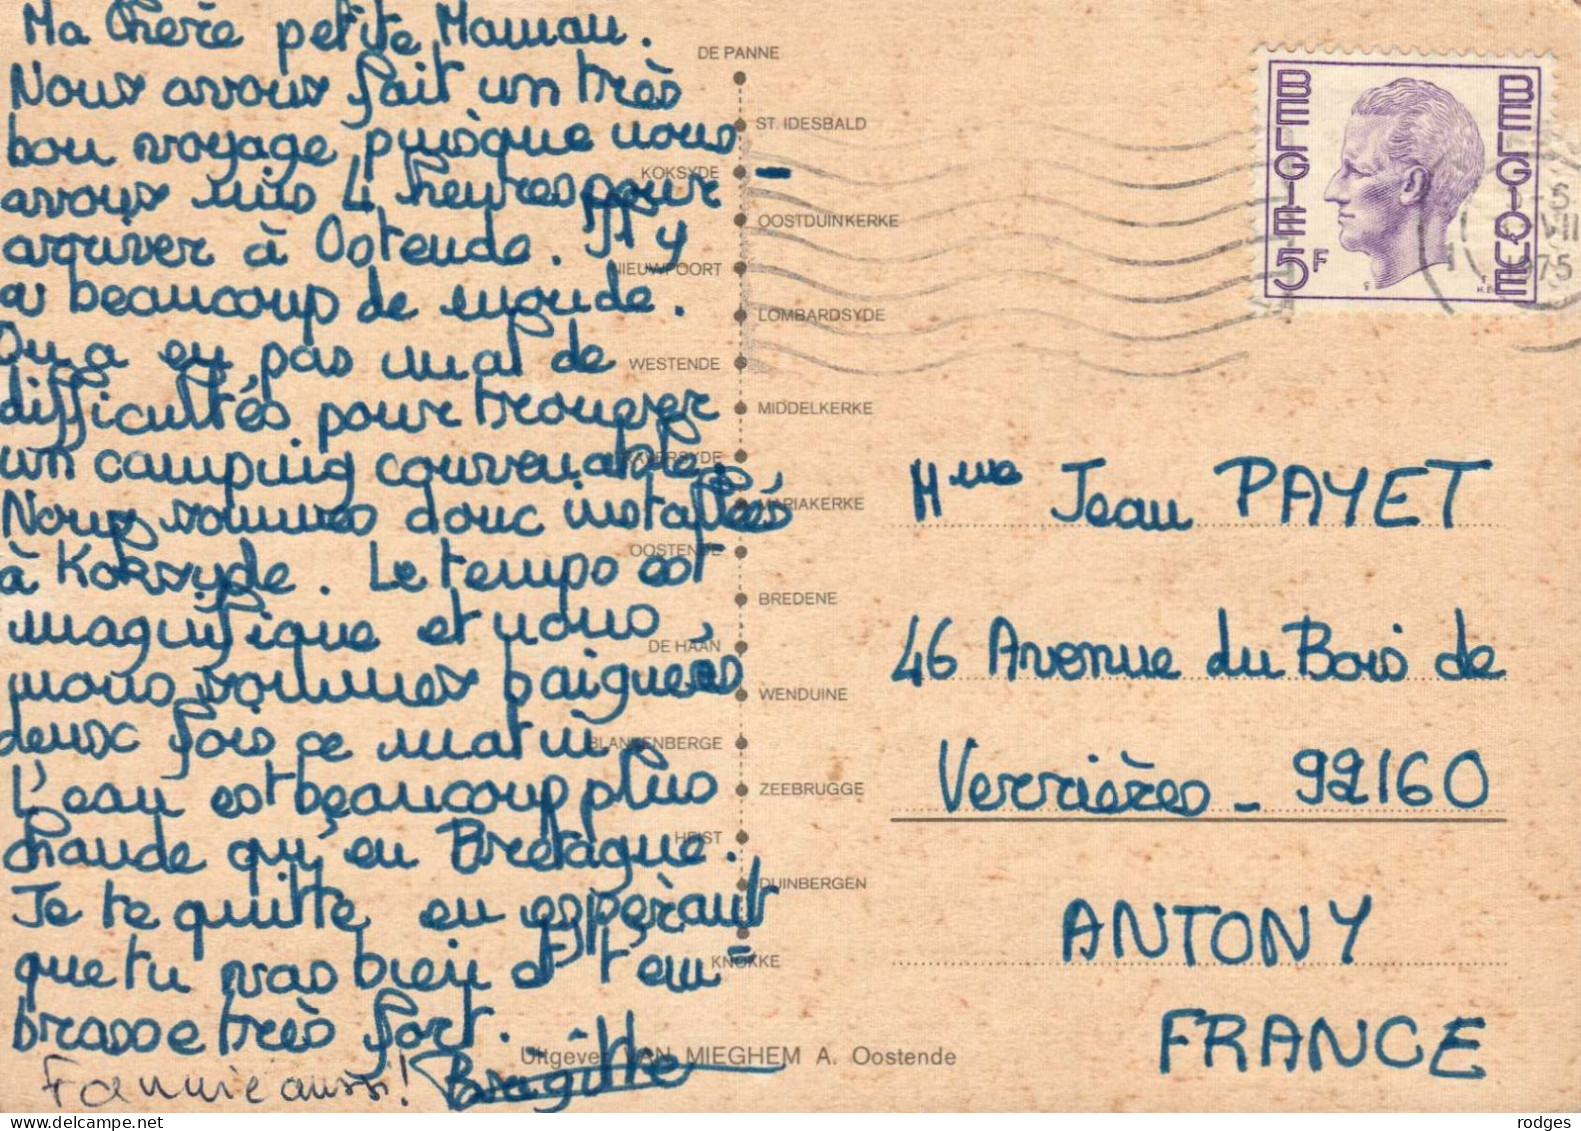 Ma chère petite Maman.
Nous avons fait un très
bon voyage puisque nous
avons mis 4 heures pour
arriver à Ostende. Il y
a beaucoup de monde.
On a eu pas mal de
difficultés pour trouver
un camping convenable.
Nous sommes donc installées
à Koksyde. Le temps est
magnifique et nous
nous sommes baignées
deux fois ce matin
L'eau est beaucoup plus
chaude qu'en Bretagne.
Je te quitte en espérant
que tu vas bien et t'em-
brasse très fort.
Brigitte
Fannie aussi!
DE PANNE
ST. IDESBALD
KOKSYDE
OOSTDUINKERKE
NIEUWPOORT
LOMBARDSYDE
WESTENDE
MIDDELKERKE
RAVERSYDE
MARIAKERKE
OOSTENDE
BREDENE
DE HAAN
WENDUINE
BLANKENBERGE
ZEEBRUGGE
HEIST
DUINBERGEN
KNOKKE
Uitgever VAN MIEGHEM A. Oostende
BELGIE 5F
BELGIQUE
5
VII
1975
Mme Jean PAYET
46 Avenue du Bois de
Verrières - 92160
ANTONY
FRANCE
delcampe.net
rodges